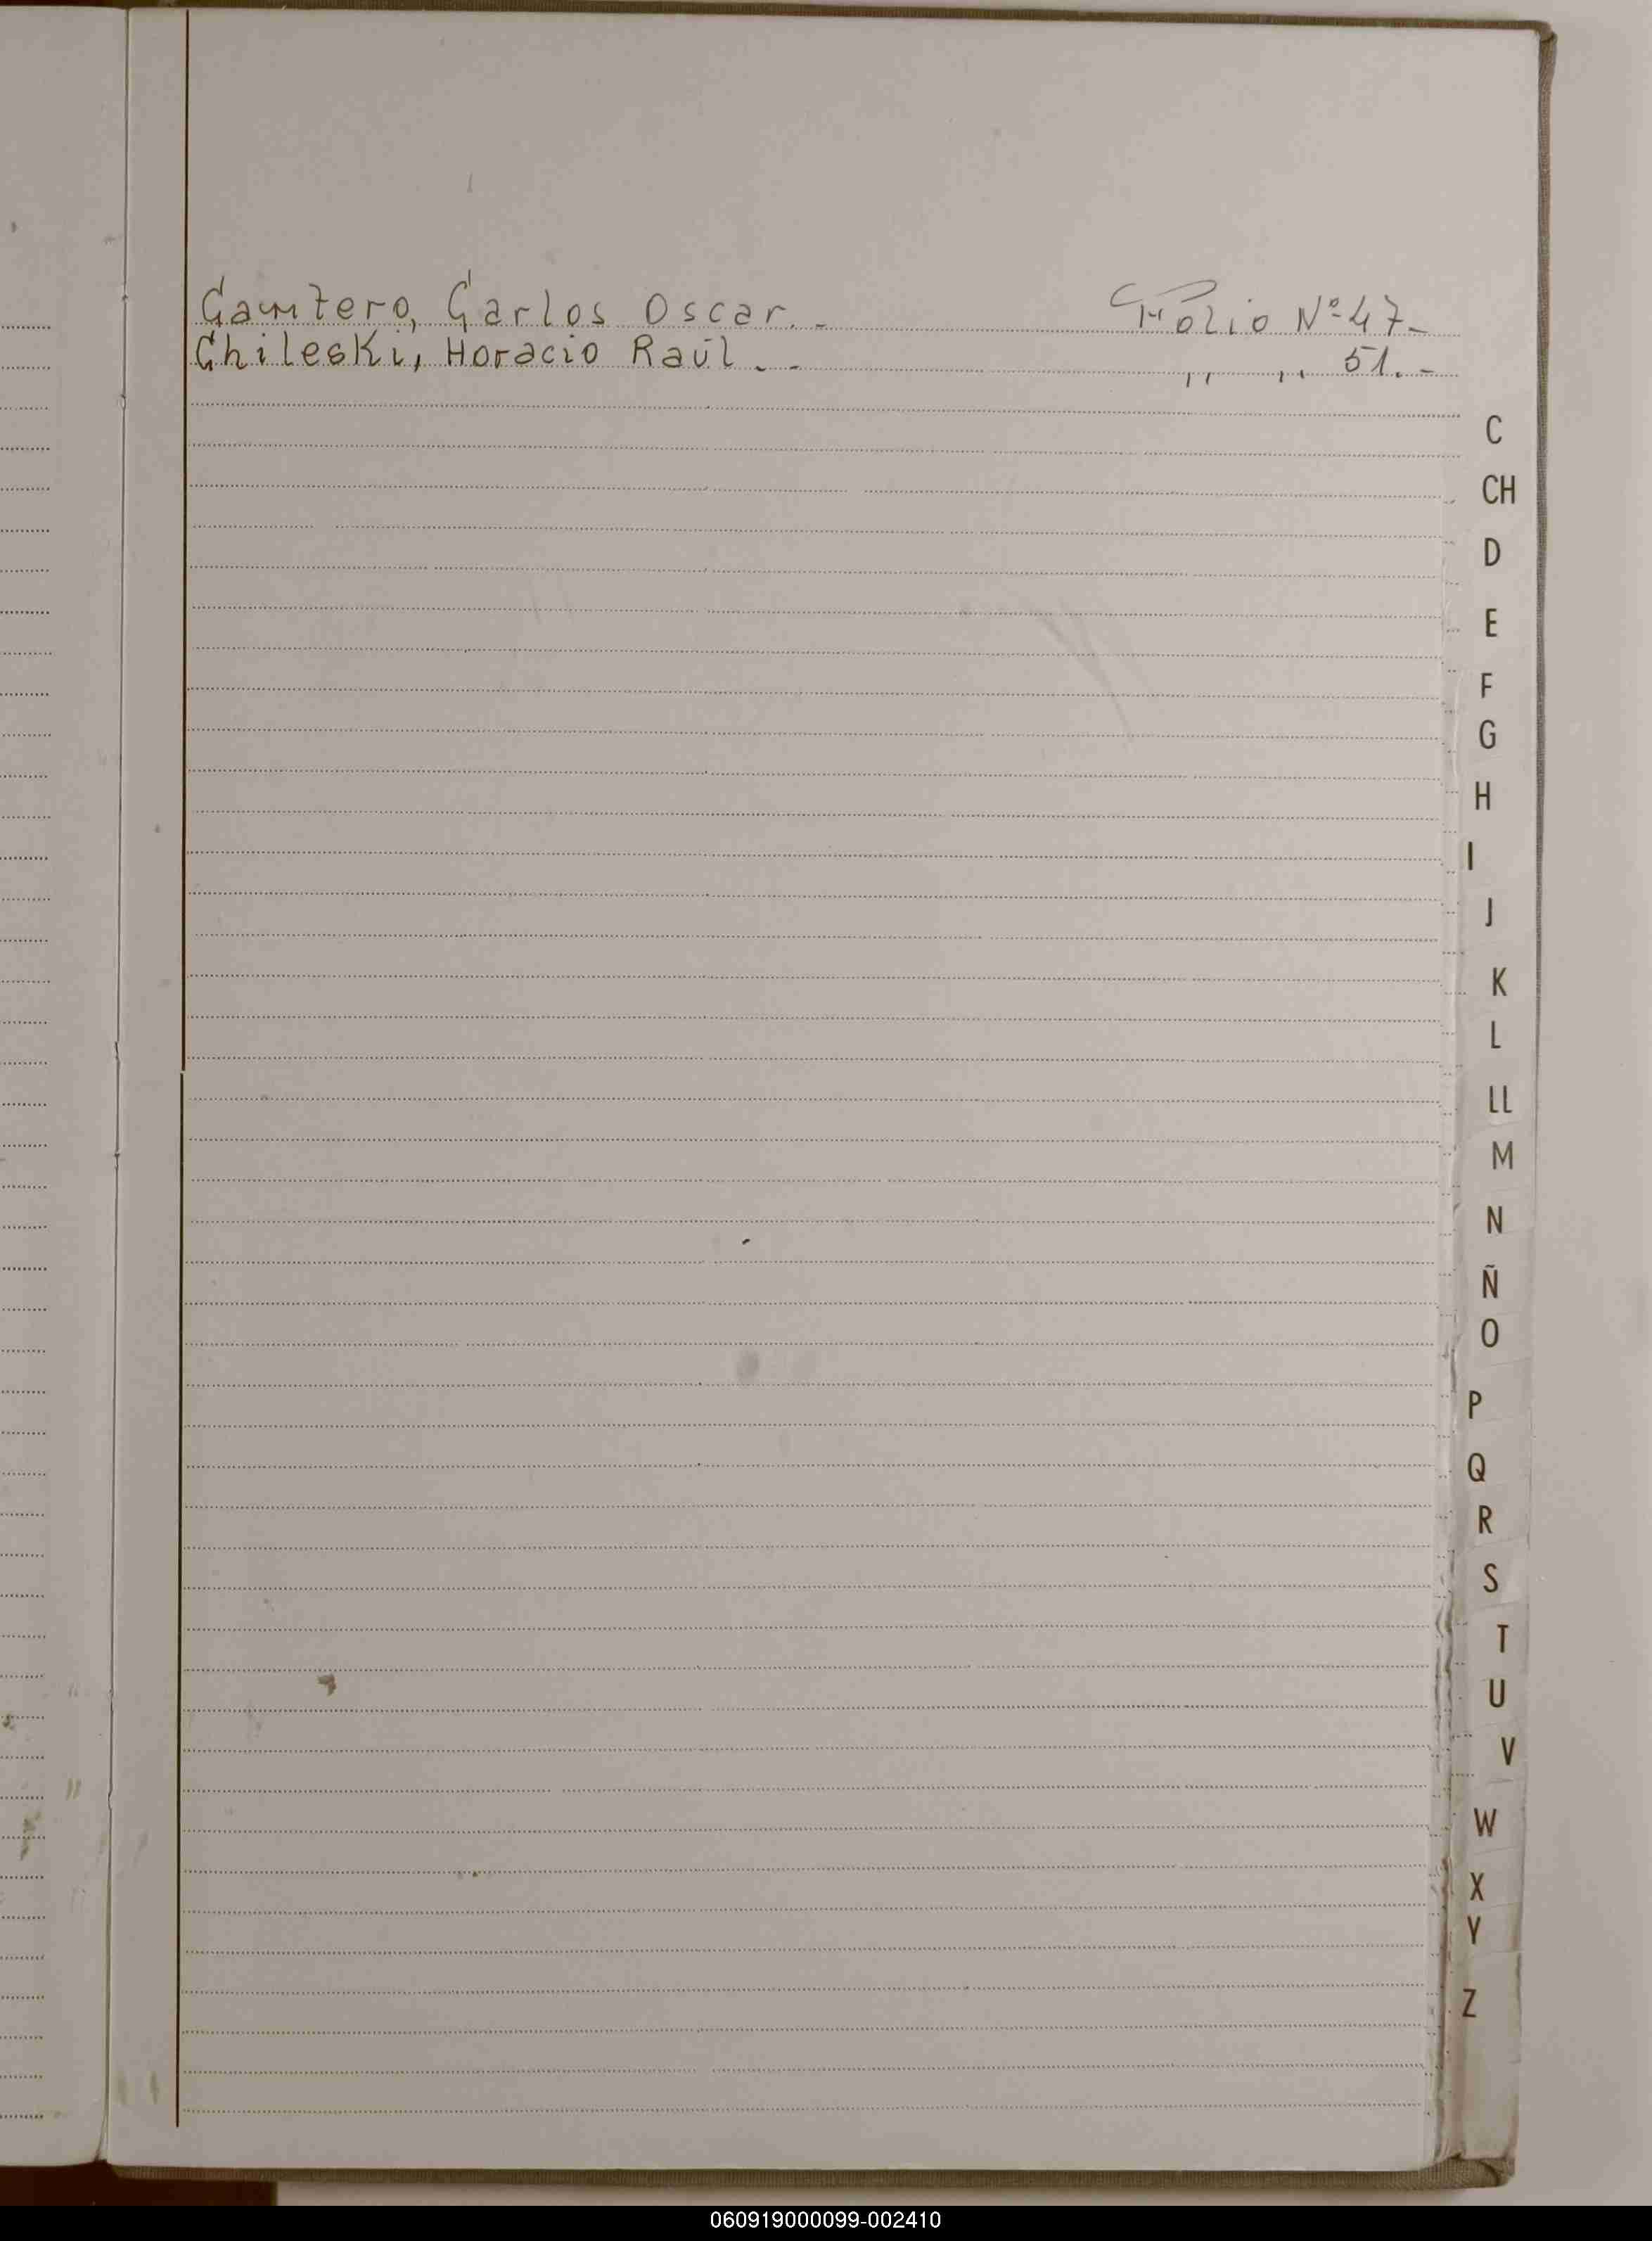 Cantero, Carlos Oscar.- Folio Nº 47-
Chileski, Horacio Raúl.- ,, ,, 51.-
C
CH
D
E
F
G
H
I
J
K
L
LL
M
N
Ñ
O
P
Q
R
S
T
U
V
W
X
Y
Z
060919000099-002410